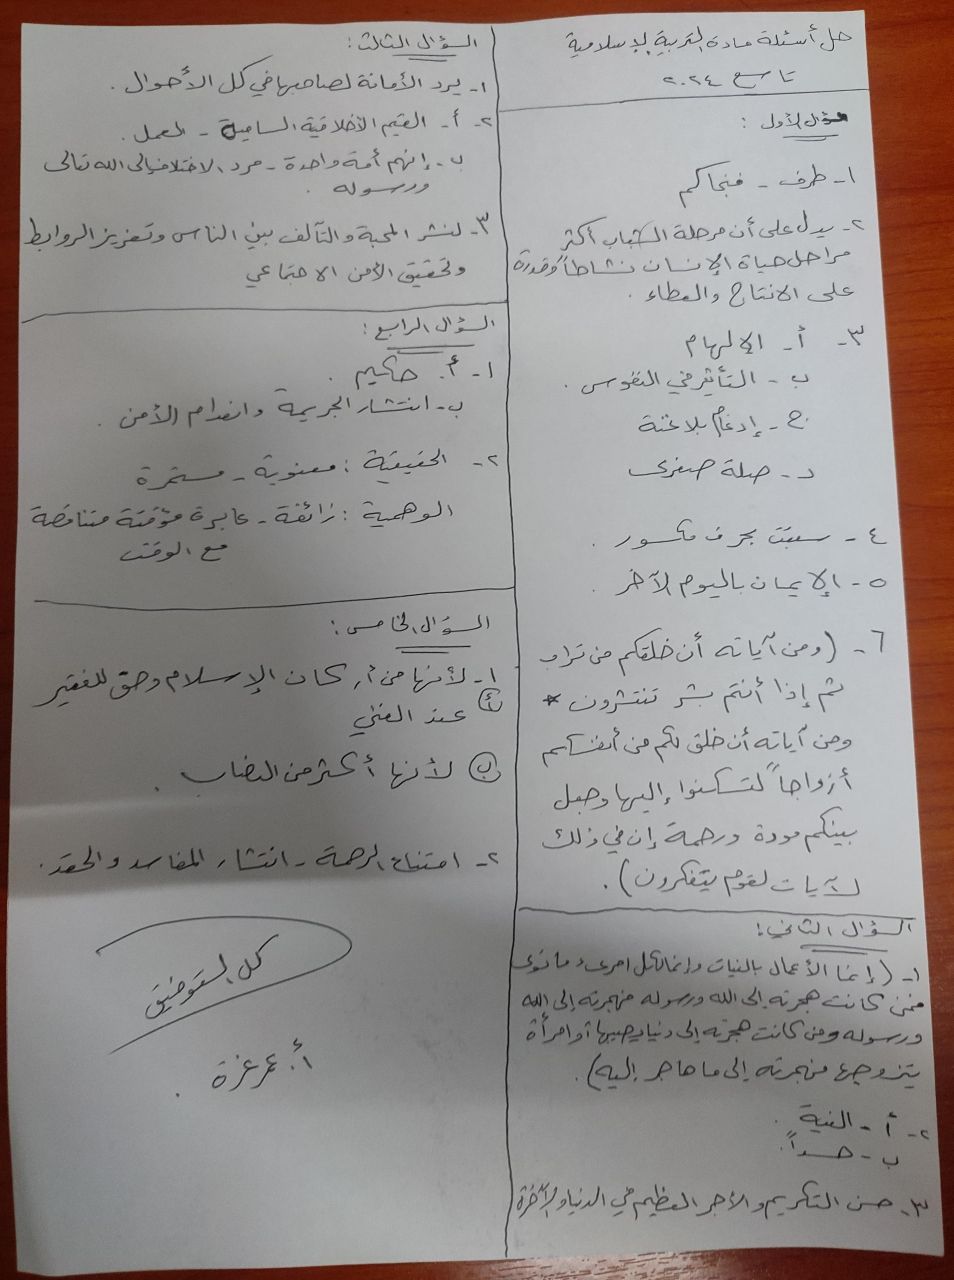 حل أسئلة مادة التربية الإسلامية
تاسع ٢٠٢٤
السؤال الأول :
١- طرف - فنجاكم
٢- يدل على أن مرحلة الشباب أكثر
مراحل حياة الإنسان نشاطاً وقدرة
على الانتاج والعطاء .
٣- أ- الإلهام
ب- التأثير في النفوس .
ج- إدغام بلا غنة
د- صلة صغرى
٤- سبقت بحرف مكسور .
٥- الإيمان باليوم الآخر .
٦- (ومن آياته أن خلقكم من تراب
ثم إذا أنتم بشر تنتشرون *
ومن آياته أن خلق لكم من أنفسكم
أزواجاً لتسكنوا إليها وجعل
بينكم مودة ورحمة إن في ذلك
لآيات لقوم يتفكرون) .
السؤال الثاني :
١- (إنما الأعمال بالنيات وإنما لكل امرىء ما نوى
فمن كانت هجرته إلى الله ورسوله فهجرته إلى الله
ورسوله ومن كانت هجرته إلى دنيا يصيبها أو امرأة
يتزوجها فهجرته إلى ما هاجر إليه) .
٢- أ- النية .
ب-
٣- حسن التكريم والأجر العظيم في الدنيا والآخرة
السؤال الثالث :
١- يرد الأمانة لصاحبها في كل الأحوال .
٢- أ- القيم الأخلاقية السامية - العمل .
ب- إنهم أمة واحدة - مرد الاختلاف إلى الله تعالى
ورسوله .
٣- لنشر المحبة والتآلف بين الناس وتعزيز الروابط
وتحقيق الأمن الاجتماعي
السؤال الرابع :
١- أ. حكيم .
ب- انتشار الجريمة وانعدام الأمن .
٢- الحقيقية : معنوية - مستمرة
الوهمية : زائفة - عابرة مؤقتة متناقصة
مع الوقت
السؤال الخامس :
١- أ لأنها من أركان الإسلام وحق للفقير
عند الغني
ب لأنها أكثر من النصاب .
٢- امتناع الرحمة - انتشار المفاسد والحقد .
كل التوفيق
أ. عمر غزة .